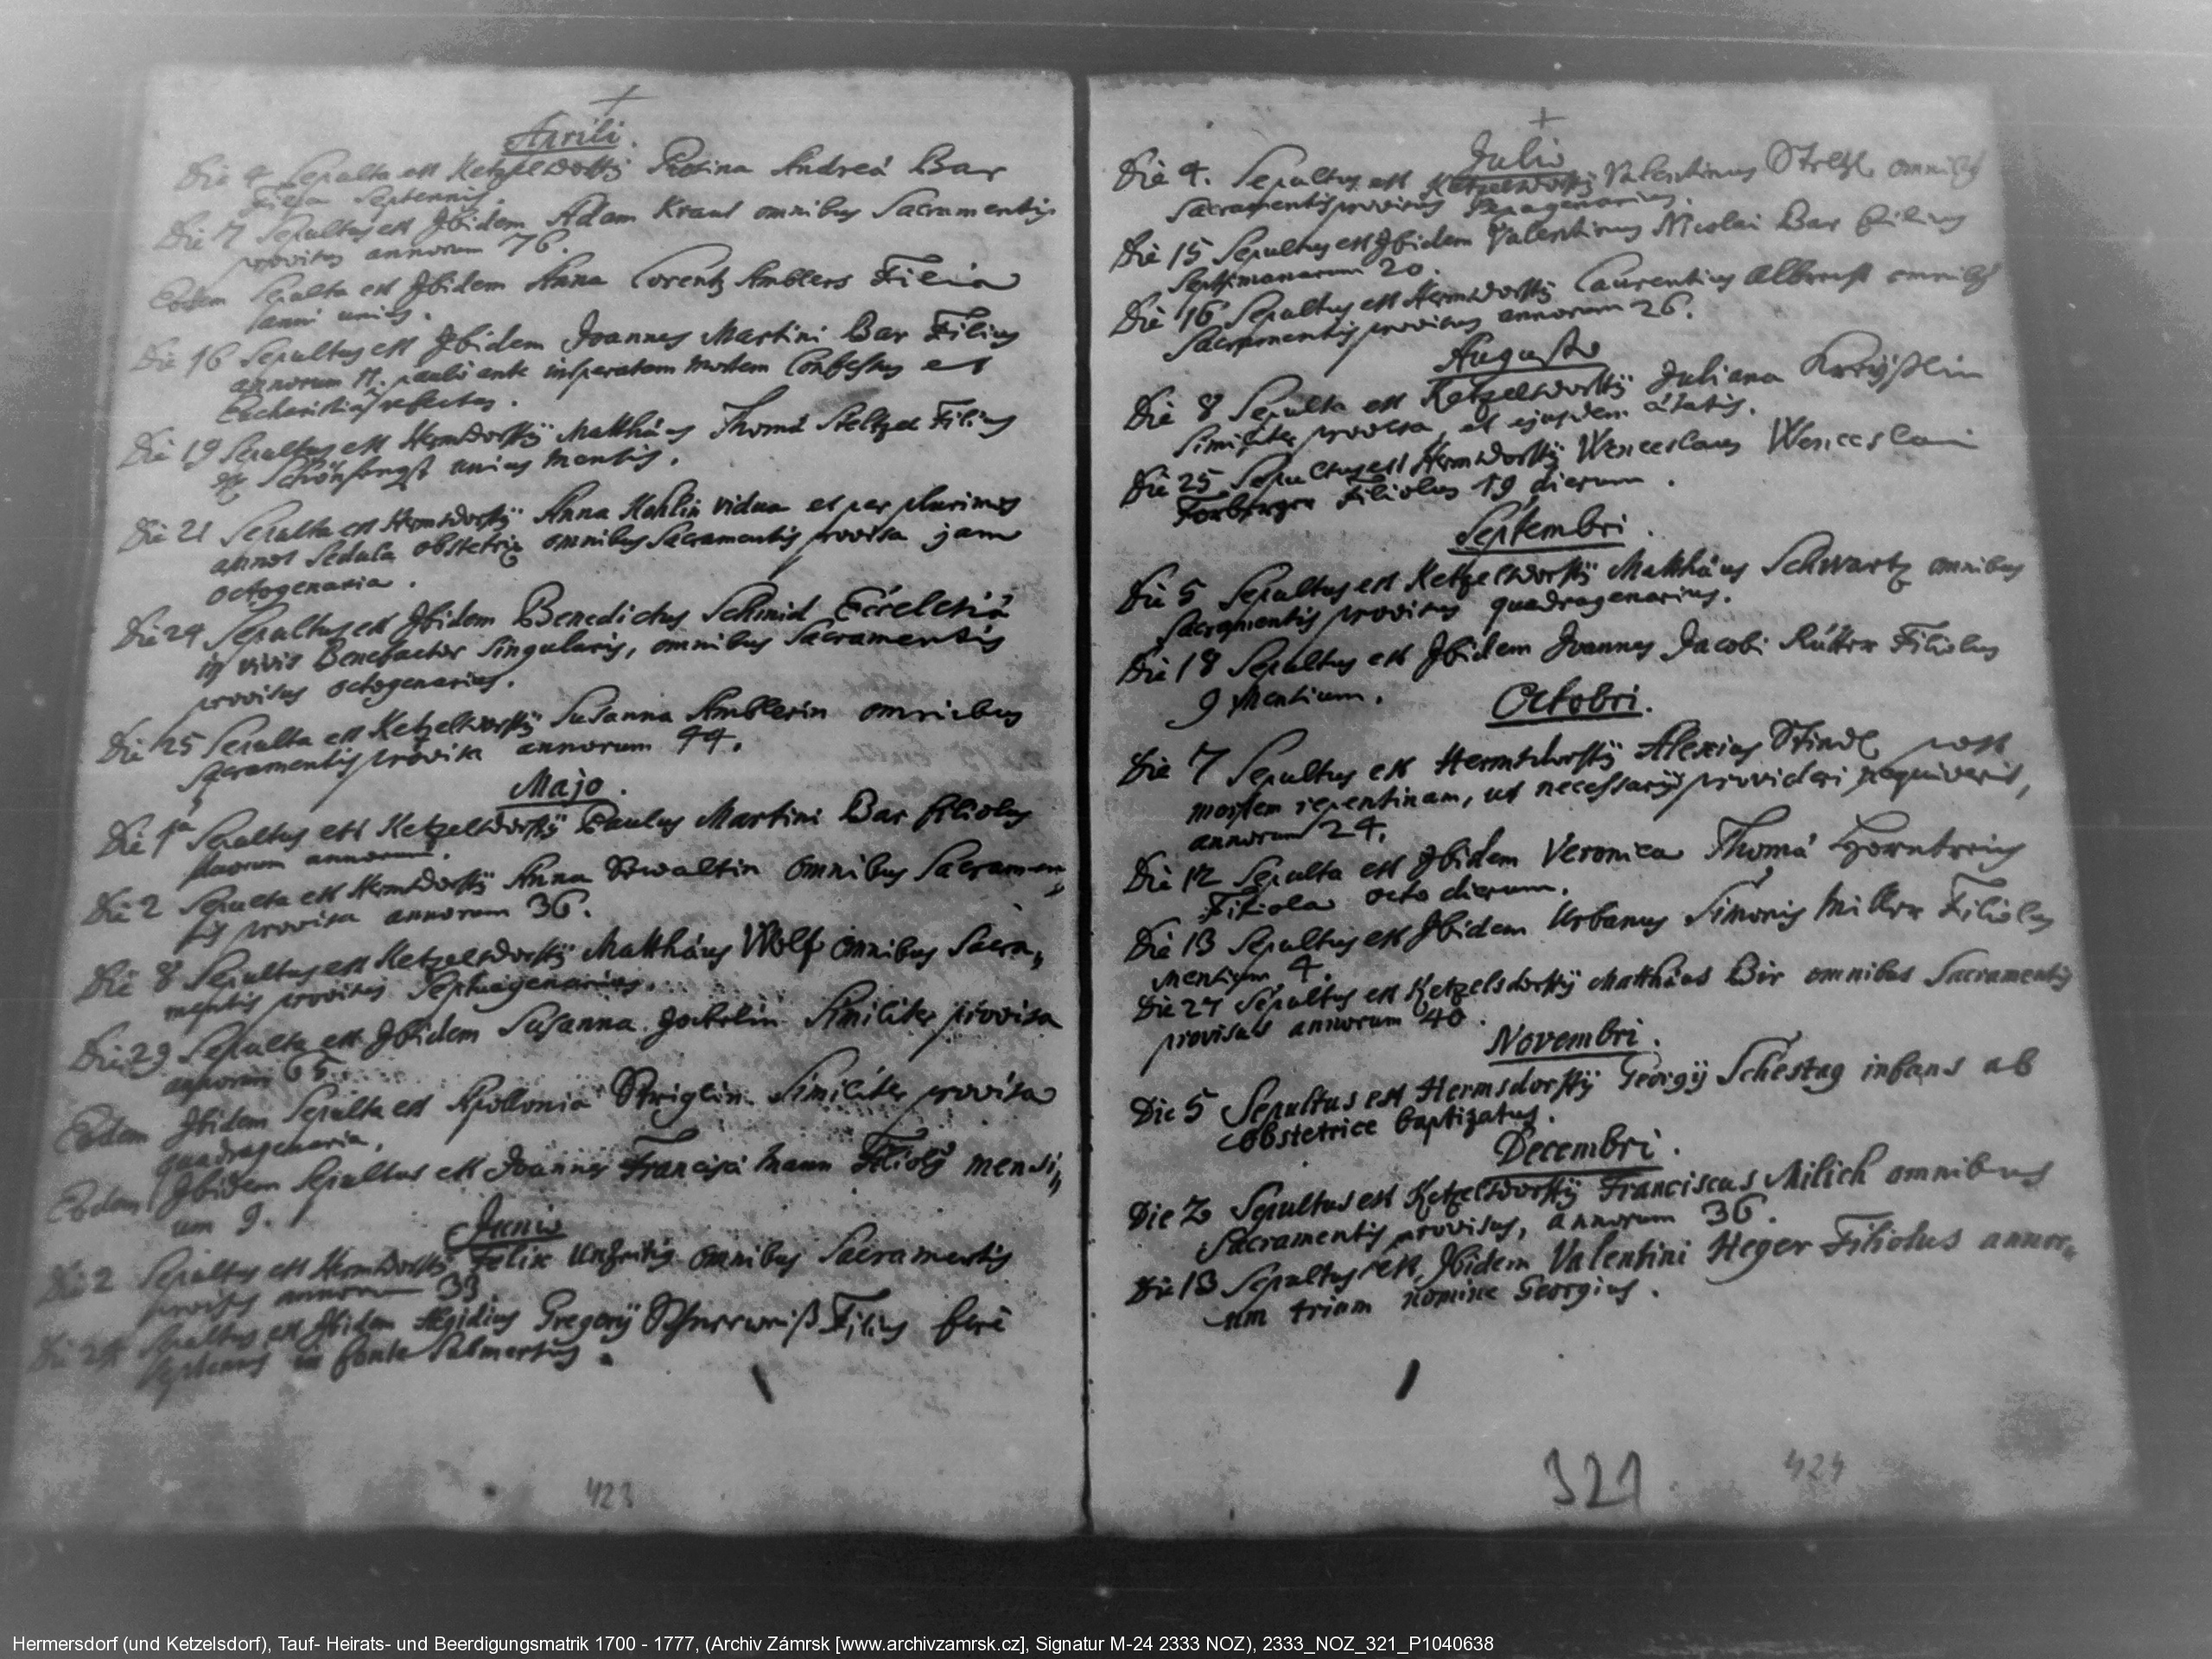 Aprili.
Die 4 Sepulta est Ketzelsdorffÿ Rosina Andreä Bar
Filia Septennis.
Die 7 Sepultus est Ibidem Adam Kraus omnibus Sacramentis
provisus annorum 76.
Eodem Sepulta est Ibidem Anna Lorentz Amblers Filia
anni unius.
Die 16 Sepultus est Ibidem Joannes Martini Bar Filius
annorum 11. paulo ante insperatam mortem Confessus et
Eucharistia refectus.
Die 19 Sepultus est Hermsdorffÿ Matthäus Thomä Steltzel Filius
ex unius mensis.
Die 21 Sepulta est Hermsdorffÿ Anna vidua et per plurimos
annos Sedula obstetrix omnibus Sacramentis provisa jam
octogenaria.
Die 24 Sepultus est Ibidem Benedictus Schmid Ecclesiä
in vivis Benefactor Singularis, omnibus Sacramentis
provisus octogenarius.
Die 25 Sepulta est Ketzelsdorffÿ Susanna Amblerin omnibus
Sacramentis provisa annorum 44.
Majo.
Die 1ª Sepultus est Ketzelsdorffÿ Paulus Martini Bar filiolus
duorum annorum.
Die 2 Sepulta est Hermsdorffÿ Anna omnibus Sacramen„
tis provisa annorum 36.
Die 8 Sepultus est Ketzelsdorffÿ Matthäus Wolf omnibus Sacra„
mentis provisus Septuagenarius.
Die 29 Sepulta est Ibidem Susanna Similiter provisa
annorum 65.
Eodem Ibidem Sepulta est Apollonia Similiter provisa
quadragenaria.
Eodem Ibidem Sepultus est Joannes Francisci Mann Filiolus mensi„
um 9.
Junio
Die 2 Sepultus est Hermsdorffÿ Felix omnibus Sacramentis
provisus annorum 33
Die Sepultus est Ibidem Aegidius Gregorÿ Filius ferè
Septennis in fonte Submersus.
423
Julio
Die 4. Sepultus est Ketzelsdorffÿ Valentinus omnibus
Sacramentis provisus
Die 15 Sepultus est Ibidem Valentinus Nicolai Bar filius
Septimanarum 20.
Die 16 Sepultus est Hermsdorffÿ Laurentius Albrecht omnibus
Sacramentis provisus annorum 26.
Augusto
Die 8 Sepulta est Ketzelsdorffÿ Juliana Kreÿßlin
Similiter provisa et ejusdem ätatis.
Die 25 Sepultus est Hermsdorffÿ Wenceslaus Wenceslai
Forberger Filiolus 19 dierum.
Septembri.
Die 5 Sepultus est Ketzelsdorffÿ Matthäus Schwartz omnibus
Sacramentis provisus quadragenarius.
Die 18 Sepultus est Ibidem Joannes Jacobi Rütter Filiolus
9 Mensium.
Octobri.
Die 7 Sepultus est Hermsdorffÿ Alexius Stindl post
mortem repentinam, ut necessarÿs provideri nequiverit,
annorum 24.
Die 12 Sepulta est Ibidem Veronica Thomä
Filiola octo dierum.
Die 13 Sepultus est Ibidem Urbanus Simonis Miller Filiolus
Mensium 4.
Die 27 Sepultus est Ketzelsdorffÿ Matthäus Bir omnibus Sacramentis
provisus annorum 40.
Novembri.
Die 5 Sepultus est Hermsdorffÿ Georgÿ Schestag infans ab
obstetrice baptizatus.
Decembri.
Die 2 Sepultus est Ketzelsdorffÿ Franciscus Milich omnibus
Sacramentis provisus, annorum 36.
Die 13 Sepultus est Ibidem Valentini Heger Filiolus annor„
um trium nomine Georgius.
321 424
Hermersdorf (und Ketzelsdorf), Tauf- Heirats- und Beerdigungsmatrik 1700 - 1777, (Archiv Zámrsk [www.archivzamrsk.cz], Signatur M-24 2333 NOZ), 2333_NOZ_321_P1040638